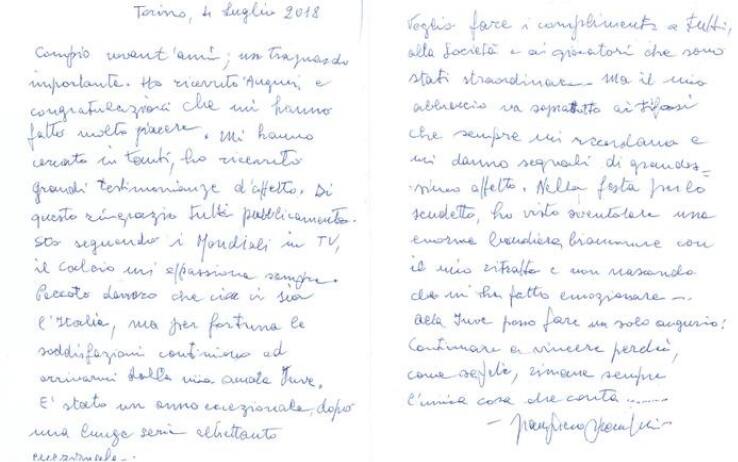 Torino, 4 Luglio 2018
Compio novant'anni; un traguardo
importante. Ho ricevuto Auguri e
congratulazioni che mi hanno
fatto molto piacere. Mi hanno
cercato in tanti, ho ricevuto
grandi testimonianze d'affetto. Di
questo ringrazio tutti pubblicamente.
Sto seguendo i Mondiali in TV,
il calcio mi appassiona sempre.
Peccato davvero che non ci sia
l'Italia, ma per fortuna le
soddisfazioni continuano ad
arrivarmi dalla mia amata Juve.
E' stato un anno eccezionale, dopo
una lunga serie altrettanto
eccezionale.
Voglio fare i complimenti a tutti,
alla Società e ai giocatori che sono
stati straordinari. Ma il mio
abbraccio va soprattutto ai tifosi
che sempre mi ricordano e
mi danno segnali di grandis=
simo affetto. Nella festa per lo
scudetto, ho visto sventolare una
enorme bandiera bianconera con
il mio ritratto e non nascondo
che mi ha fatto emozionare...
Alla Juve posso fare un solo augurio:
Continuare a vincere perché,
come sapete, rimane sempre
l'unica cosa che conta........